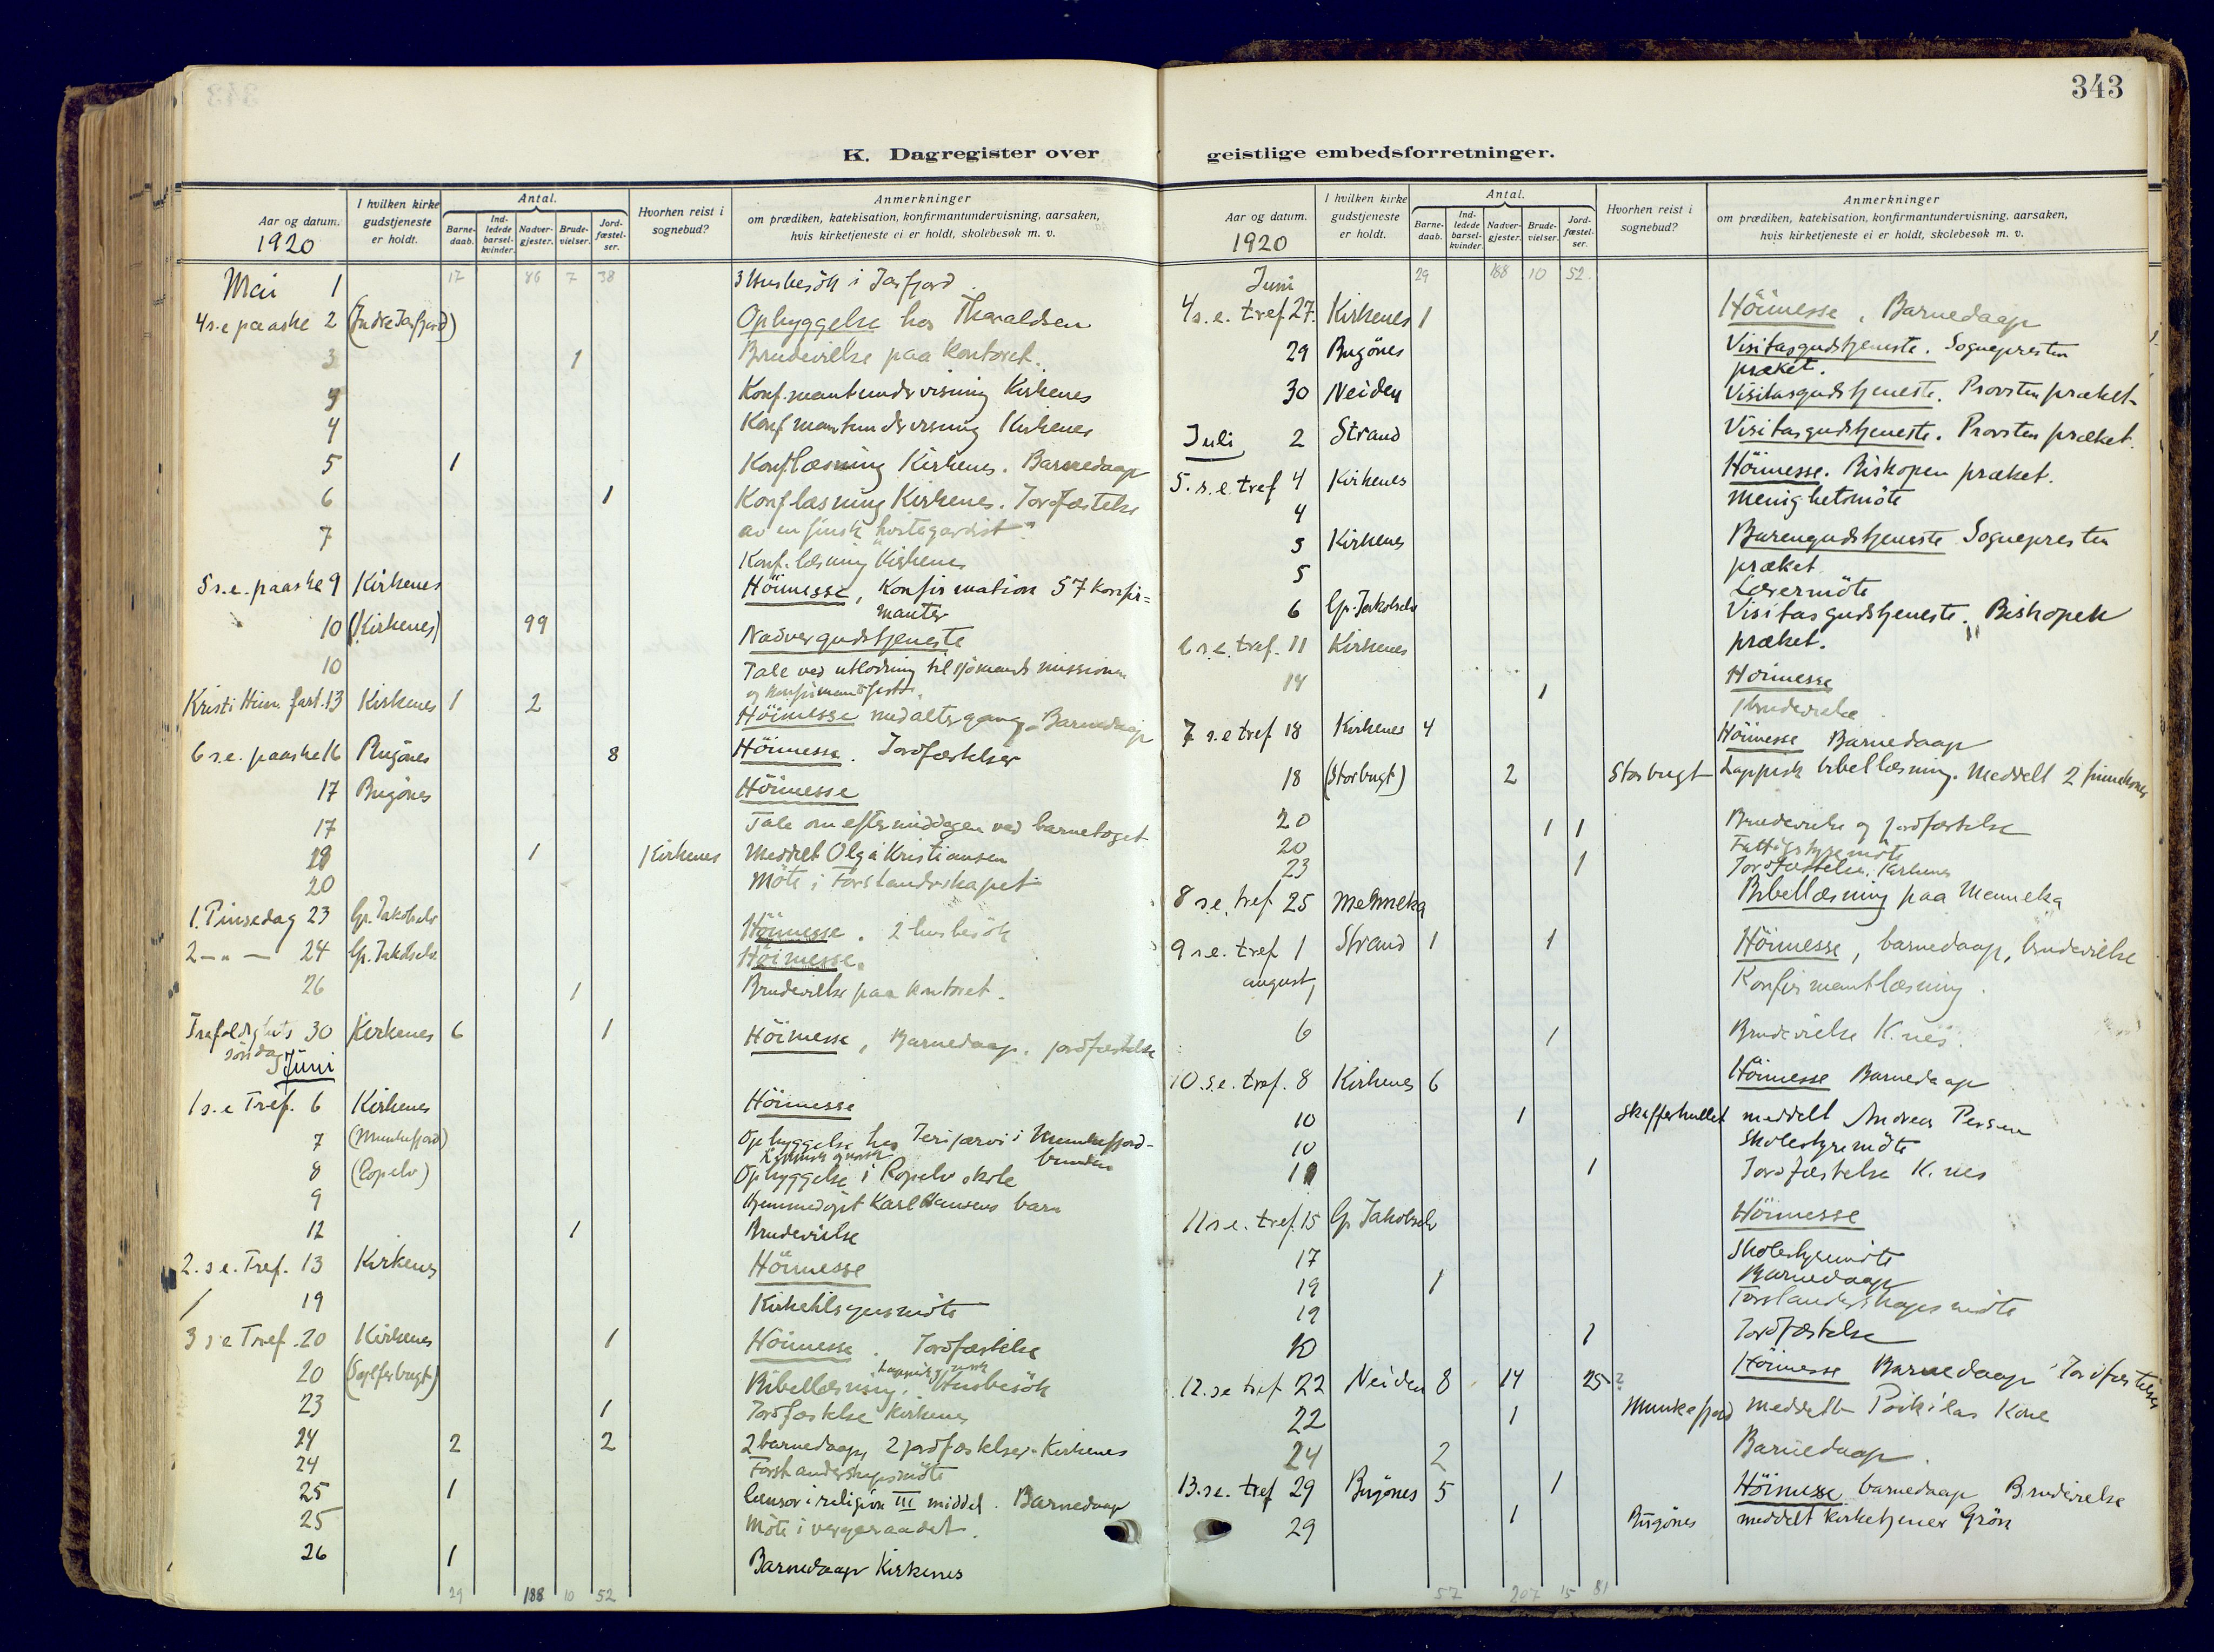 343
K. Dagregister over
geistlige embedsforretninger.
Aar og datum.
1920
I hvilken kirke
gudstjeneste
er holdt.
Antal.
Barne-
daab.
Ind-
ledede
barsel-
kvinder.
Nadver-
gjester.
Brude-
vielser.
Jord-
fæstel-
ser.
Hvorhen reist i
sognebud?
Anmerkninger
om prædiken, katekisation, konfirmantundervisning, aarsaken,
hvis kirketjeneste ei er holdt, skolebesøk m. v.
17 86 7 38
Mai 1 3 Husbesök i Jarfjord
4 s.e paaske 2 (Indre Jarfjord) Opbyggelse hos Tharaldsen
3 1 Brudevielse paa kontoret.
3 Konf.mantundervisning Kirkenes
4 Konfmantundervisning Kirkenes
5 1 Konf.læsning Kirkenes. Barnedaap
6 1 Konflæsning Kirkenes. Jordfæstelse
av en finsk
7 Konf. læsning Kirkenes
5 s.e. paaske 9 Kirkenes Höimesse, Konfirmation 57 konfir=
manter
10 (Kirkenes) 99 Nadvergudstjeneste
10 Tale ved utlodning til sjömandsmissionen
og konfirmantfest.
Kristi Him. fart. 13 Kirkenes 1 2 Höimesse med altergang. Barnedaap
6 s.e. paaske 16 Bugönes 8 Höimesse. Jordfæstelser
17 Bugönes Höimesse
17 Tale om eftermiddagen ved barnetoget
18 1 Kirkenes Meddelt Olga Kristiansen
20 Möte i Forstandsskapet
1. Pinsedag 23 Gr. Jakobselv Höimesse. 2 husbesök
2 - " - 24 Gr. Jakobselv Höimesse.
26 1 Brudevielse paa kontoret.
Trefoldigheds 30 Kirkenes 6 1 Höimesse, Barnedaap, jordfæstelse
söndag
Juni
1 s.e Tref. 6 Kirkenes Höimesse
7 (Munkefjord) Opbyggelse hos Terijærvi i Munkefjord-
bunden
8 (Ropelv) Opbyggelse i Ropelv skole
9 Hjemmedöpt Karl Hansens barn
12 1 Brudevielse
2. s e. Tref. 13 Kirkenes Höimesse
19 Kirketilsynsmöte
3 s e Tref. 20 Kirkenes 1 Höimesse. Jordfæstelse
20 Bibellæsning. Husbesök
23 1 Jordfæstelse Kirkenes
24 2 2 2 barnedaap, 2 jordfæstelser. Kirkenes
24 Forstanderskapsmöte
25 1 Censor i religion III middel. Barnedaap
25 Möte i vergeraadet.
26 1 Barnedaap Kirkenes
29 188 10 52
Aar og datum.
1920
I hvilken kirke
gudstjeneste
er holdt.
Antal.
Barne-
daab.
Ind-
ledede
barsel-
kvinder.
Nadver-
gjester.
Brude-
vielser.
Jord-
fæstel-
ser.
Hvorhen reist i
sognebud?
Anmerkninger
om prædiken, katekisation, konfirmantundervisning, aarsaken,
hvis kirketjeneste ei er holdt, skolebesøk m. v.
Juni 29 188 10 52
4 s.e. tref. 27. Kirkenes 1 Höimesse, Barnedaap
29 Bugönes Visitasgudstjeneste. Sognepresten
præket.
30 Neiden Visitasgudstjeneste. Provsten præket
Juli 2 Strand Visitasgudstjeneste. Provsten præket.
5. s.e. tref 4 Kirkenes Höimesse. Biskopen præket.
4 Menighetsmöte
5 Kirkenes Barnegudstjeneste Sognepresten
præket
5 Lærermöte
6 Gr. Jakobselv Visitasgudstjeneste. Biskopen
præket.
6 s.e. tref. 11 Kirkenes Höimesse
14 1 Brudevielse
7 s.e tref 18 Kirkenes 4 Höimesse Barnedaap
18 (Storbugt) 2 Storbugt Lappisk bibellæsning. Meddelt 2 finnekoner
20 1 1 Brudevielse og jordfæstelse
20 Fattigstyremöte
23 1 Jordfæstelse. Kirkenes
8 s.e. tref 25 Mennika Bibellæsning paa Mennika
9 s.e. tref 1 Strand 1 1 Höimesse, barnedaap, brudevielse
august, Konfirmantlæsning.
6 1 Brudevielse K.nes.
10. s.e. tref. 8 Kirkenes 6 Höimesse Barnedaap
10 1 Skafferhullet meddelt Andreas Persen
10 Skolestyremöte
11 1 Jordfæstelse K.nes
11 s.e. tref. 15 Gr Jakobselv Höimesse
17 Skolestyremöte
19 1 Barnedaap
19 Forstanderskapsmöte
20 1 Jordfæstelse
12. se tref 22 Neiden 8 14 25 Höimesse Barnedaap Jordfæstelse
22 1 Munkefjord meddelt kone
24 2 Barnedaap.
13. s.e. tref 29 Bugönes 5 1 Höimesse barnedaap Brudevielse
29 1 Bugönes meddelt kirketjener Grön
57 207 15 81